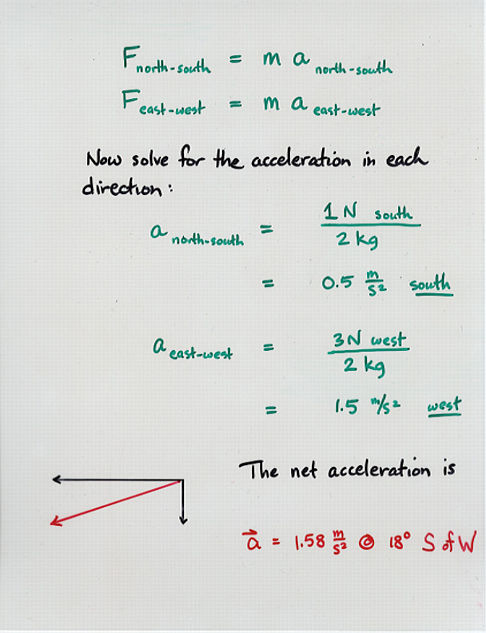 F north-south = m a north-south
F east-west = m a east-west
Now solve for the acceleration in each
direction:
a north-south = 1 N south / 2 kg
= 0.5 m/s² south
a east-west = 3 N west / 2 kg
= 1.5 m/s² west
The net acceleration is
a⃗ = 1.58 m/s² @ 18° S of W